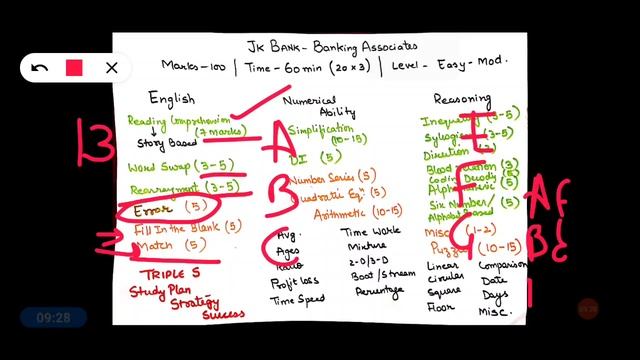 JK BANK - Banking Associates
Marks-100 | Time - 60 min (20 x 3) | Level - Easy - Mod.
English
Reading Comprehension
(7 marks)
Story Based
Word Swap (3-5)
Rearrangment (3-5)
Error (5)
Fill In the Blank (5)
Match (5)
TRIPLE S
Study Plan
Strategy
Success
13
Numerical
Ability
Simplification
(10-15)
DI (5)
Number Series (5)
Quadratic Eqn (5)
Arithmetic (10-15)
Avg.
Ages
Ratio
Profit loss
Time Speed
Time Work
Mixture
2-D/3-D
Boat/Stream
Percentage
A
B
C
Reasoning
Inequality (3-5)
Syllogism (3-5)
Direction
Blood Relation (3)
Code Decode (5)
(5)
Six Number/ (5)
Alphabet Based
Misc (1-2)
Puzzle (10-15)
Linear
Circular
Square
Floor
Comparison
Date
Days
Misc.
E
F
G
09:28